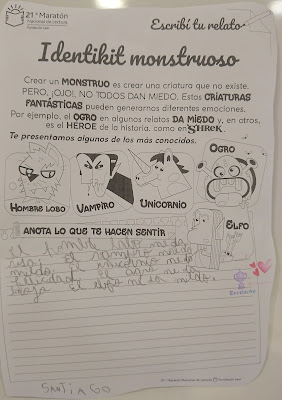 21° Maratón
nacional de lectura
Fundación Leer
Escribí tu relato
Identikit monstruoso
Crear un MONSTRUO es crear una criatura que no existe.
PERO, ¡OJO!, NO TODOS DAN MIEDO. Estas CRIATURAS
FANTÁSTICAS pueden generarnos diferentes emociones.
Por ejemplo, el OGRO en algunos relatos DA MIEDO y, en otros,
es el HÉROE de la historia, como en SHREK.
Te presentamos algunos de los más conocidos.
OGRO
HOMBRE LOBO
VAMPIRO
UNICORNIO
ELFO
ANOTA LO QUE TE HACEN SENTIR
El lobo me da
risa, El vampiro me da
miedo, El unicornio me da
felicidad, El ogro me da
El elfo me da miedo.
SANTIAGO